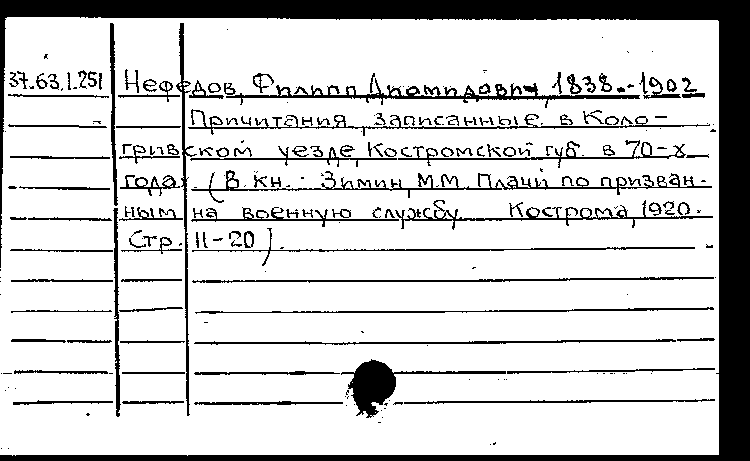 37.63.1.251 Нефедов, Филипп Диомидович, 1838.-1902
Причитания, записанные в Коло-
гривском уезде, Костромской губ. в 70-х
года. (В кн.: Зимин, М.М. Плачи по призван-
ным на военную службу Кострома, 1920.
Стр. 11-20).